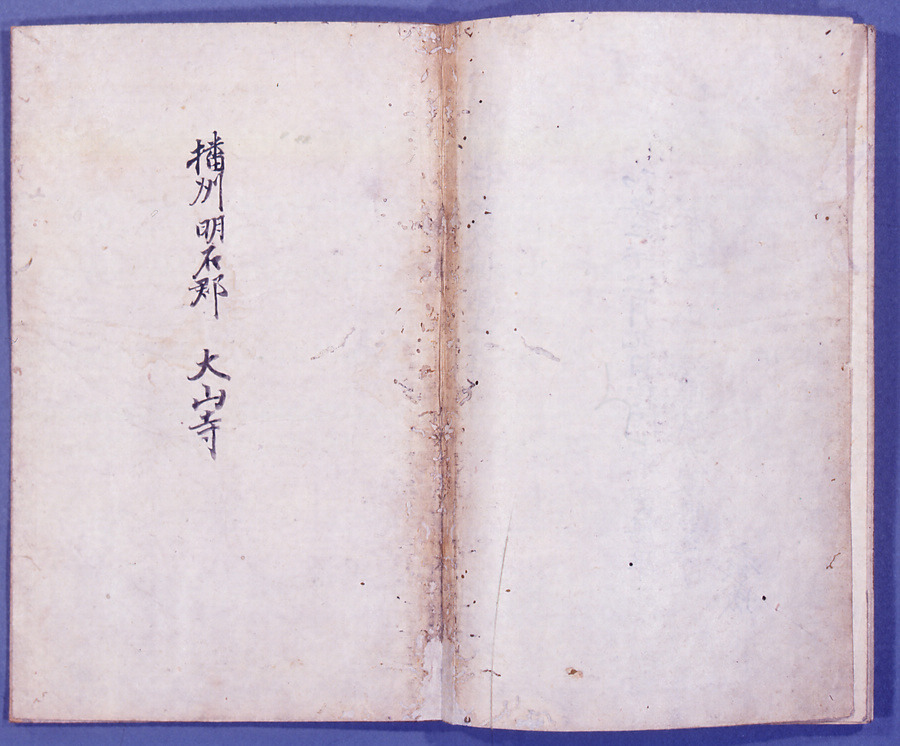 播州明石郡　大山寺